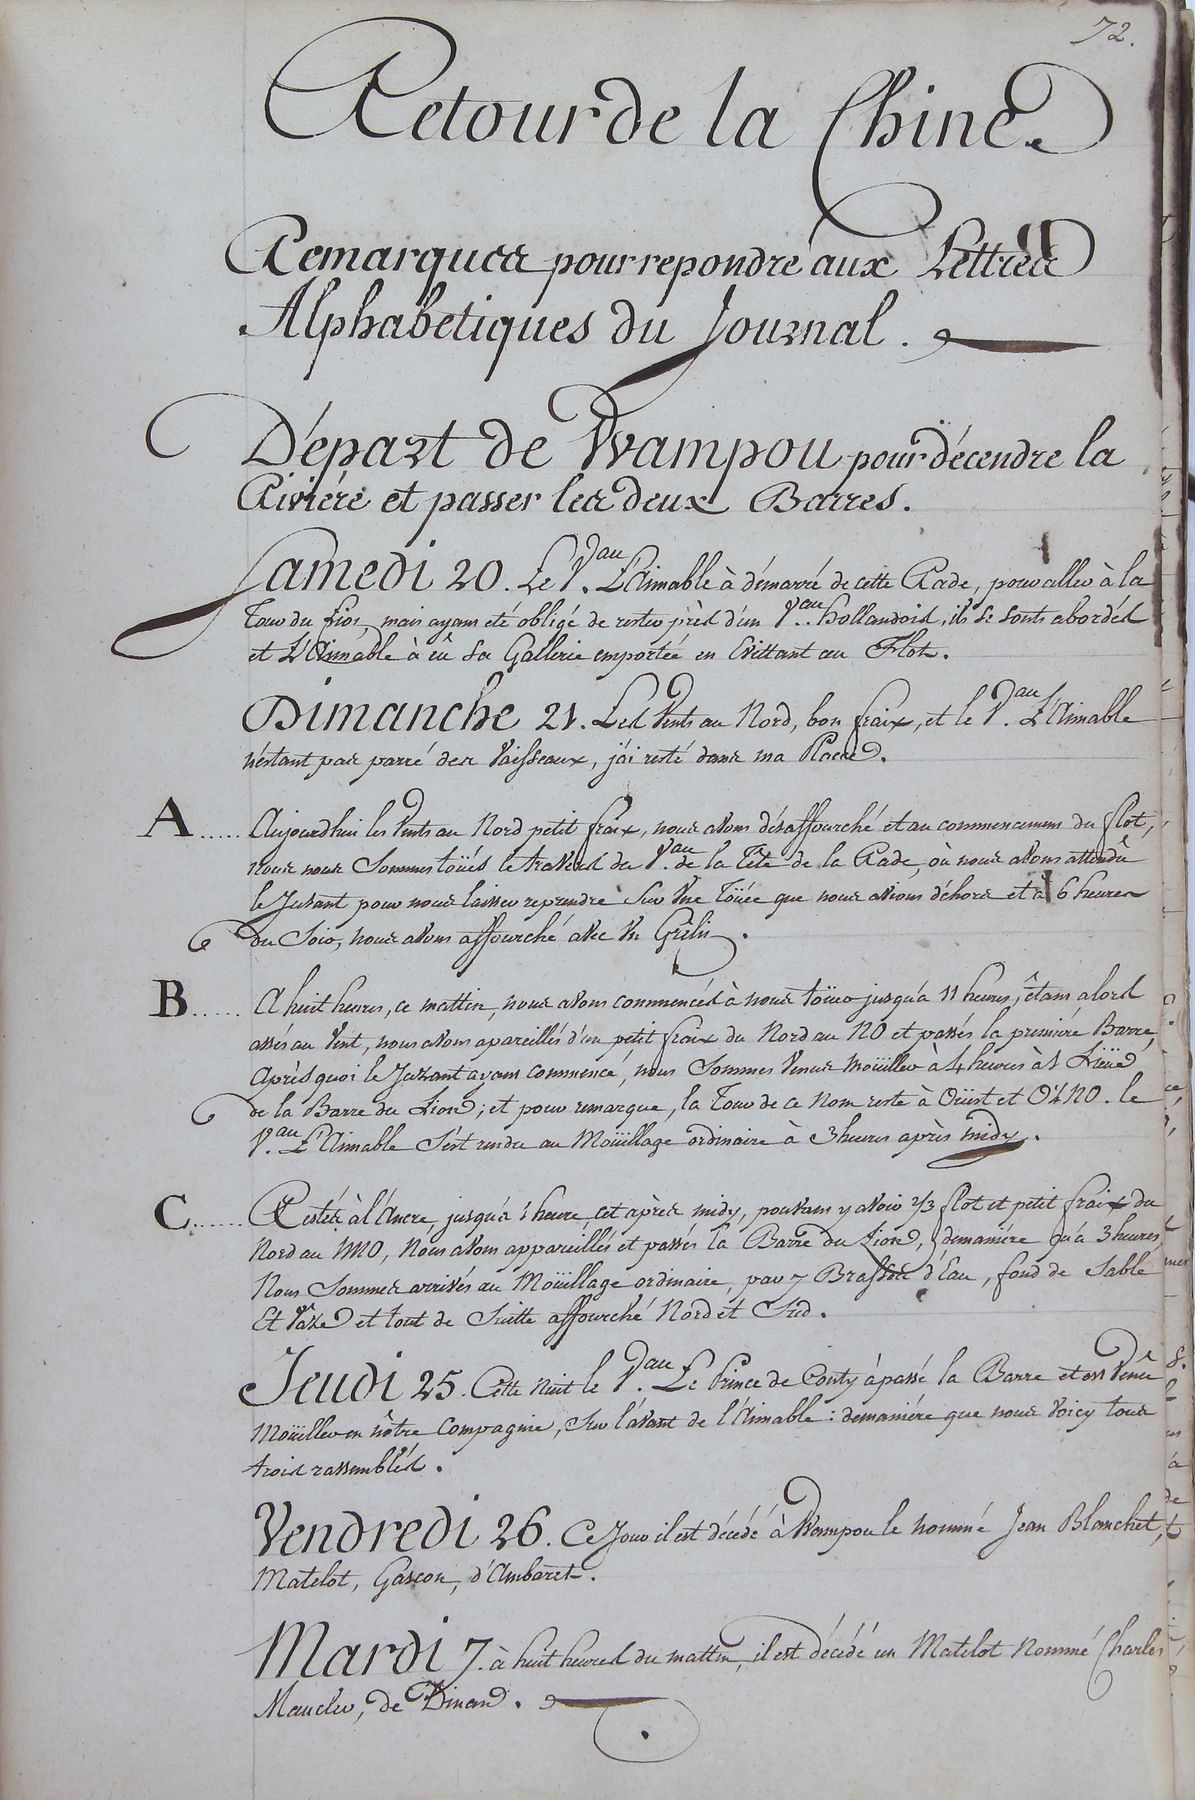 72.
Retour de la Chine.
Remarques pour repondre aux Lettres
Alphabetiques du Journal.
Départ de Wampou pour décendre la
Riviére et passer les deux Barres.
Samedi 20. Le V.au L'Aimable à démarré de cette Rade, pour aller à la
Tour du Lion, mais ayant eté obligé de rester près d'un V.au Hollandois, ils se sonts abordés
et L'Aimable à eû sa Gallerie emportée en Evittant au Flot.
Dimanche 21. Les Vents au Nord, bon fraix, et le V.au L'Aimable
n'estant pas parré des Vaisseaux, j'ai resté dans ma Place.
A ..... Aujourdhui les Vents au Nord petit fraix, nous avons désaffourché et au commencement du flot,
nous nous Sommes toüés le travers du V.au de la Tête de la Rade, où nous avons attendû
le Jusant pour nous laisser reprendre Sur Une Toüée que nous avions déhors et à 6 heures
du Soir, nous avons affourché avec Un Grêlin.
B ..... A huit heures, ce mattin, nous avons commencés à nous toüer jusqu'à 11 heures, êtant alors
assés au Vent, nous avons apareillés d'un petit fraix du Nord au NO et passés la premiére Barre,
Aprés quoi le Jusant ayant commencé, nous Sommes Venus moüiller à 4 heures à 1 Lieüe
de la Barre du Lion; et pour remarque, la Tour de ce Nom reste à Oüest et O¼NO. le
V.au L'Aimable S'est rendu au Moüillage ordinaire à 3 heures après midy.
C ..... Restés à l'Ancre, jusqu'à 1 heure, cet après midy, pouvant y avoir 2/3 flot et petit fraix du
Nord au NNO, Nous avons appareillés et passés la Barre du Lion, demaniére qu'à 3 heures
Nous Sommes arrivés au Moüillage ordinaire, par 7 Brasses d'Eau, fond de Sable
Et Vaze et tout de Suitte affourché Nord et Sud.
Jeudi 25. Cette Nuit le V.au Le Prince de Conty à passé la Barre et est Venû
Moüiller en nôtre Compagnie, Sur l'avant de l'Aimable: demaniére que nous Voicy tous
trois rassemblés.
Vendredi 26. Ce Jour il est décédé à Wampou le nommé Jean Blanchet,
Matelot, Gascon, d'Ambaret.
Mardi 7. à huit heures du mattin, il est décédé un Matelot Nommé Charles
Maucler, de Dinan.